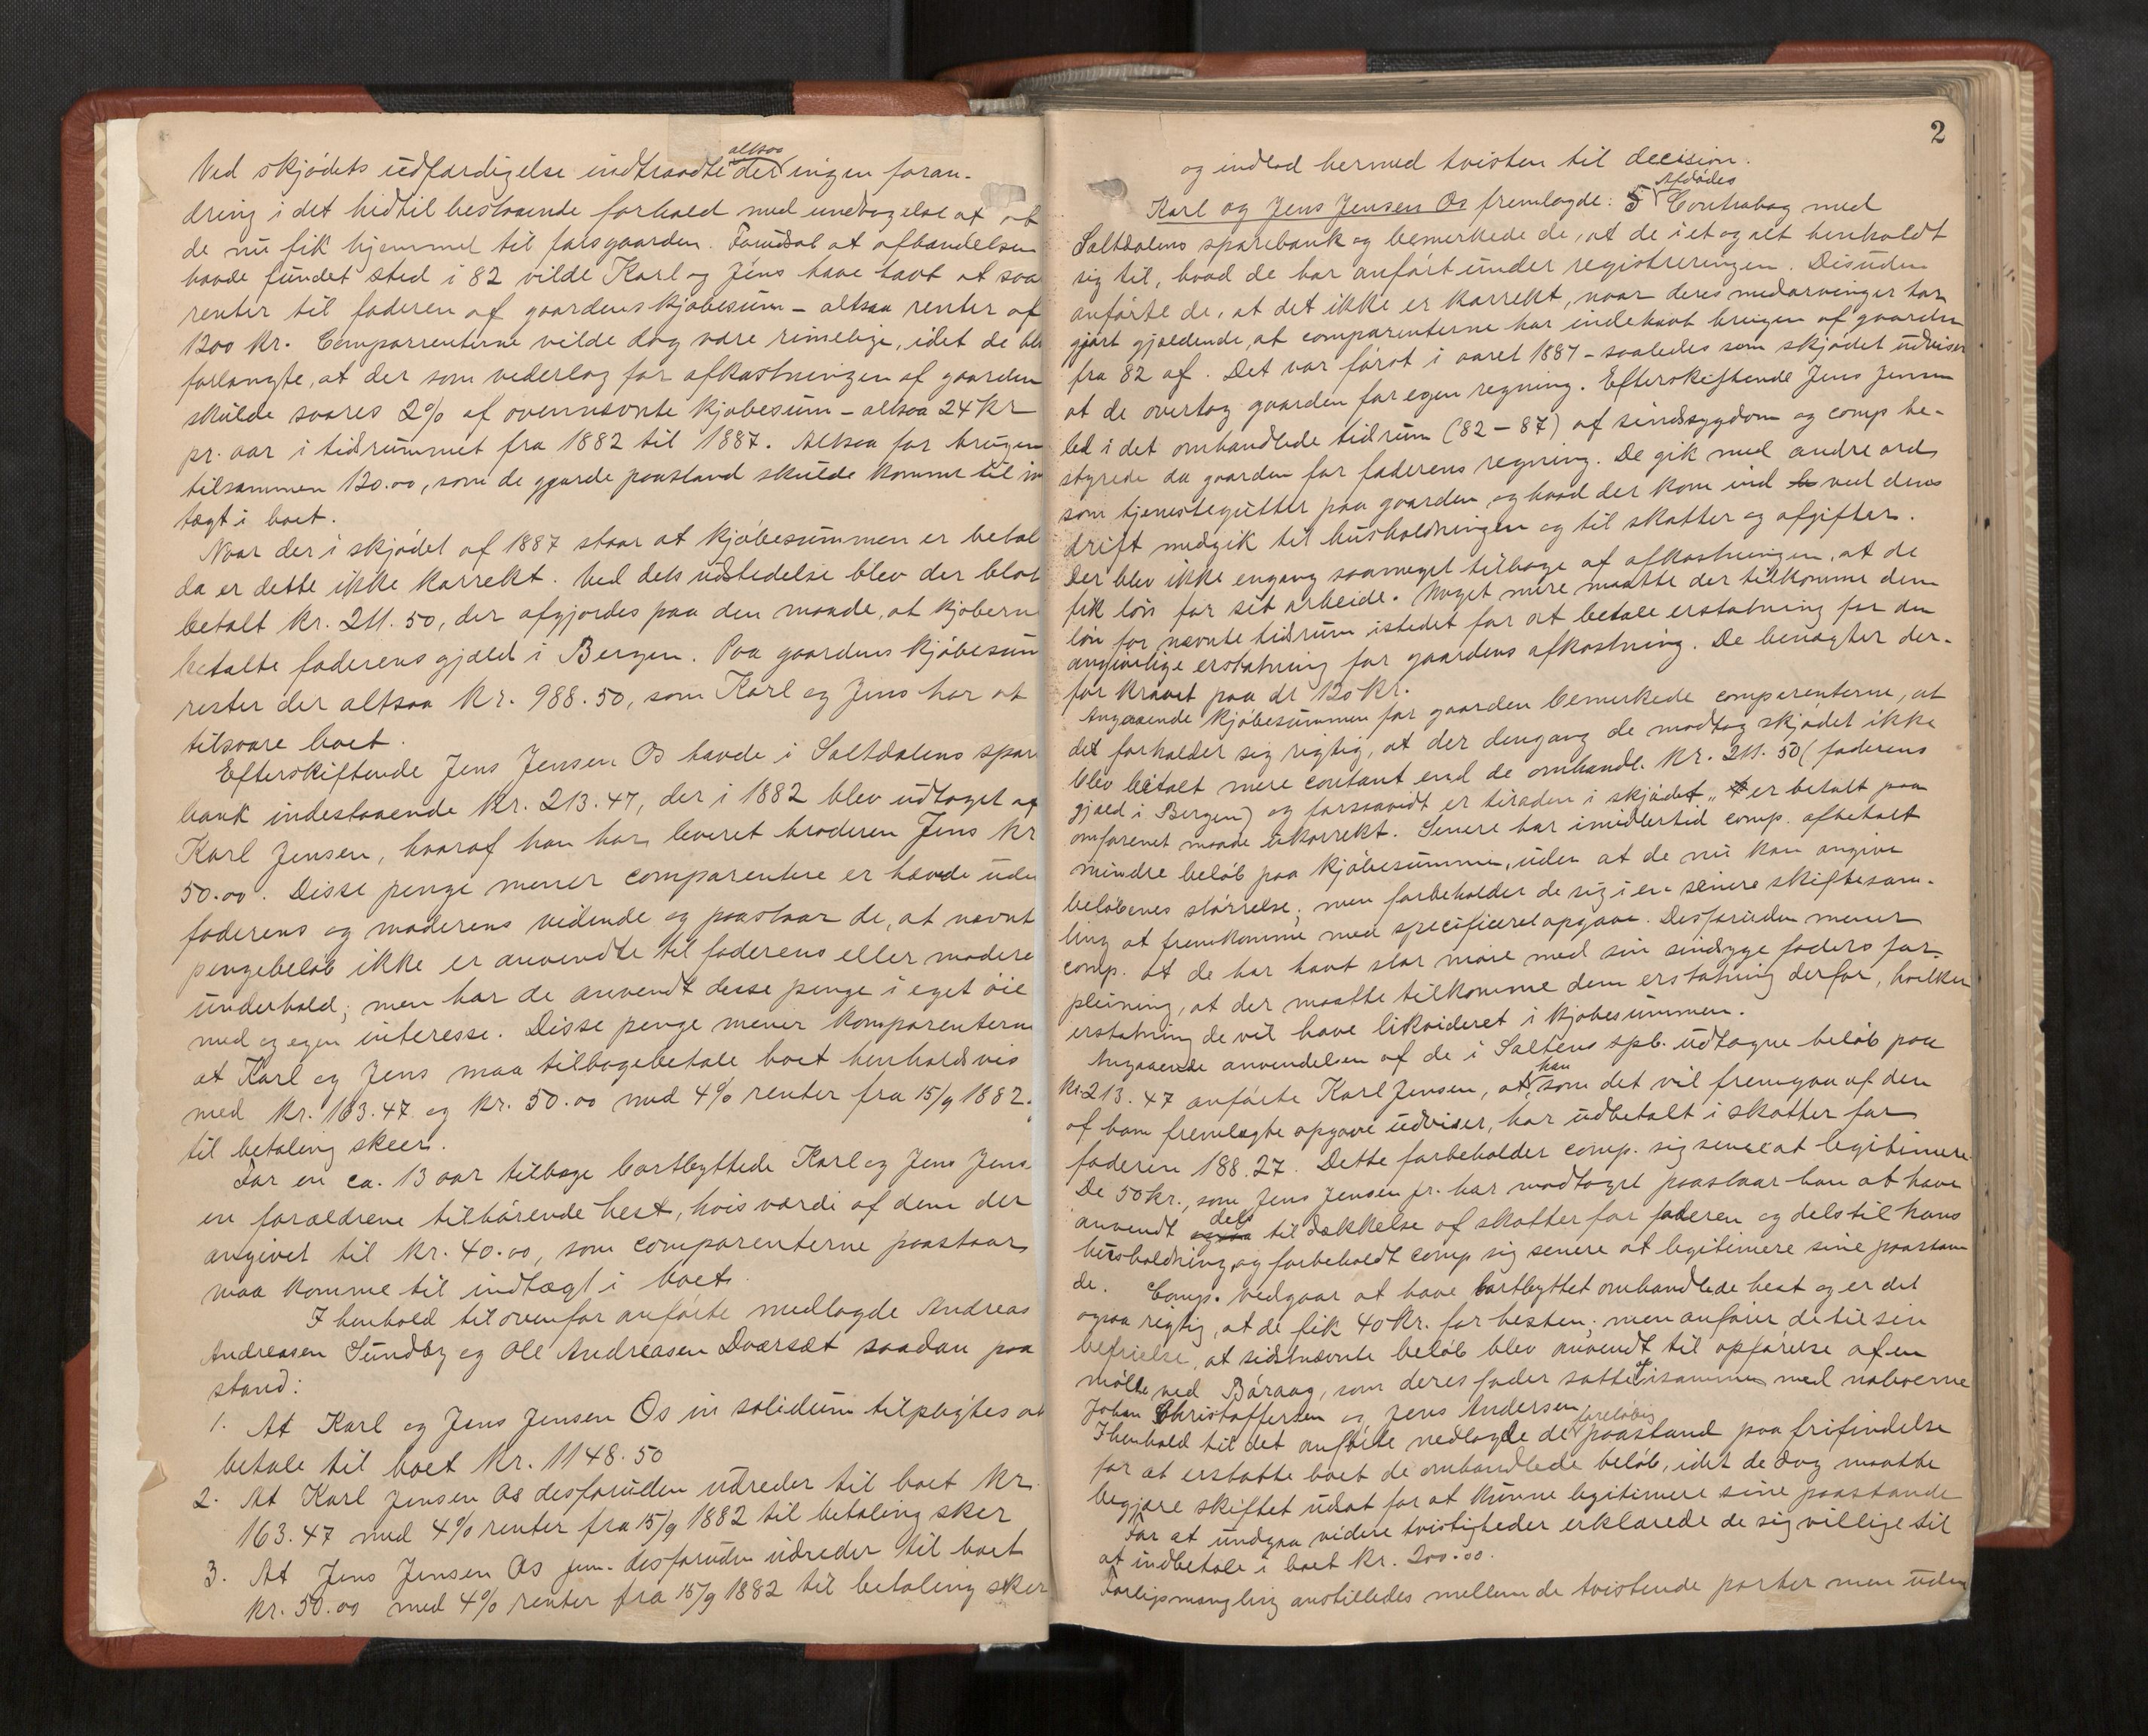 Ved skjødets udfærdigelse indtraadte der altsaa ingen foran-
dring i det hidtil bestaaende forhold med undtagelse at at
de nu fik hjemmel til farsgaarden. Forudsat at afhandelsen
havde fundet sted i 82 vilde Karl og Jens have havt at svare
renter til faderen af gaardens kjøbesum – altsaa renter af
1200 kr. Comparrenterne vilde dog være rimelige, idet de blot
forlangte, at der som vederlag for afkastningen af gaarden
skulde svares 2% af ovennævnte kjøbesum – altsaa 24 kr
pr. aar i tidsrummet fra 1882 til 1887. Altsaa for brugen
tilsammen 120.00, som de gjorde paastand skulde komme til in
tægt i boet.
Naar der i skjødet af 1887 staar at kjøbesummen er betal
da er dette ikke korrekt. Ved dets udstedelse blev der blot
betalt kr. 211.50, der afgjordes paa den maade, at kjøberne
betalte faderens gjæld i Bergen. Paa gaardens kjøbesum
rester der altsaa kr. 988.50, som Karl og Jens har at
tilsvare boet.
Efterskiftende Jens Jensen Os havde i Saltdalens spare
bank indestaaende kr. 213.47, der i 1882 blev udtaget af
Karl Jensen, hvoraf han har leveret broderen Jens kr
50.00. Disse penge mener comparentere er hævede uden
faderens og moderens vidende og paastaar de, at nævnt
pengebeløb ikke er anvendte til faderens eller modere
underhold; men har de anvendt disse penge i eget øie
med og egen interesse. Disse penge mener komparenterne
at Karl og Jens maa tilbagebetale boet henholdsvis
med kr. 163.47 og kr. 50.00 med 4% renter fra 15/9 1882.
til betaling skeer.
For en ca. 13 aar tilbage bortbyttede Karl og Jens Jens
en forældrene tilhørende hest, hvis værdi af dem der
angivet til kr. 40.00, som comparenterne paastaar
maa komme til indtægt i boet.
I henhold til ovenfor anførte nedlagde Andreas
Andreasen Sundby og Ole Andreasen Dværsæt saadan paa
stand:
1. At Karl og Jens Jensen Os in solidum tilpligtes at
betale til boet kr. 1148.50
2. At Karl Jensen Os desforuden udreder til boet kr.
163.47 med 4% renter fra 15/9 1882 til betaling sker
3. At Jens Jensen Os jun. desforuden udreder til boet
kr. 50.00 med 4% renter fra 15/9 1882 til betaling sker
2
og indlod hermed tvisten til decision.
Karl og Jens Jensen Os fremlagde: 5 Afdødes Contrabog med
Saltdalens sparebank og bemerkede de, at de i et og alt henholdt
sig til, hvad de har anført under registreringen. Desuden
anførte de, at det ikke er korrekt, naar deres medarvinger har
gjort gjældende, at comparenterne har indehavt brugen af gaarden
fra 82 af. Det var først i aaret 1887 – saaledes som skjødet udviser
at de overtog gaarden for egen regning. Efterskiftende Jens Jensen
led i det omhandlede tidsrum (82–87) af sindssygdom og comp be-
styrede da gaarden for faderens regning. De gik med andre ord
som tjenestegutter paa gaarden og hvad der kom ind ved deres
drift medgik til husholdningen og til skatter og afgifter.
Der blev ikke engang saameget tilbage af afkastningen, at de
fik løn for sit arbeide. Noget mere maatte der tilkomme dem
løn for nævnte tidsrum istedet for at betale erstatning for den
angivelige erstatning for gaardens afkastning. De benægter der-
for kravet paa dr 120 kr.
Angaaende kjøbesummen for gaarden bemerkede comparenterne, at
det forholder sig rigtig, at der dengang de modtog skjødet ikke
blev betalt mere contant end de omhandl. kr. 211.50 (faderens
gjæld i Bergen) og forsaavidt er tiraden i skjødet „er betalt paa
omforenet maade ukorrekt. Senere har imidlertid comp. afbetalt
mindre beløb paa kjøbesummen, uden at de nu kan angive
beløbenes størrelse; men forbeholder de sig i en senere skiftesam-
ling at fremkomme med specificeret opgave. Desforuden mener
comp. at de har havt stor møie med sin sindsyge faders for-
pleining, at der maatte tilkomme dem erstatning derfor, hvilken
erstatning de vil have likvideret i kjøbesummen.
Angaaende anvendelsen af de i Saltens spb. udtagne beløb paa
kr. 213.47 anførte Karl Jensen, at han, som det vil fremgaa af den
af ham fremlagte opgave udviser, har udbetalt i skatter for
faderen 188.27. Dette forbeholder comp. sig senere at legitimere
De 50 kr., som Jens Jensen jr. har modtaget paastaar han at have
anvendt dels til dækkelse af skatter for faderen og dels til hans
husholdning og forbeholdt comp sig senere at legitimere sine paastan
de. Comp. vedgaar at have bortbyttet omhandlede hest og er det
ogsaa rigtig, at de fik 40 kr. for hesten; men anfører de til sin
befrielse, at sidstnævnte beløb blev anvendt til opførelse af en
mølle ved Båraag, som deres fader satte op isammen med naboerne
Johan Christoffersen og Jens Andersen
I henhold til det anførte nedlagde de foreløbig paastand paa frifindelse
for at erstatte boet de omhandlede beløb, idet de dog maatte
begjære skiftet udsat for at kunne legitimere sine paastande
For at undgaa videre tvistigheder erklærede de sig villige til
at indbetale i boet kr. 200.00.
Forligsmægling anstilledes mellem de tvistende parter men uden